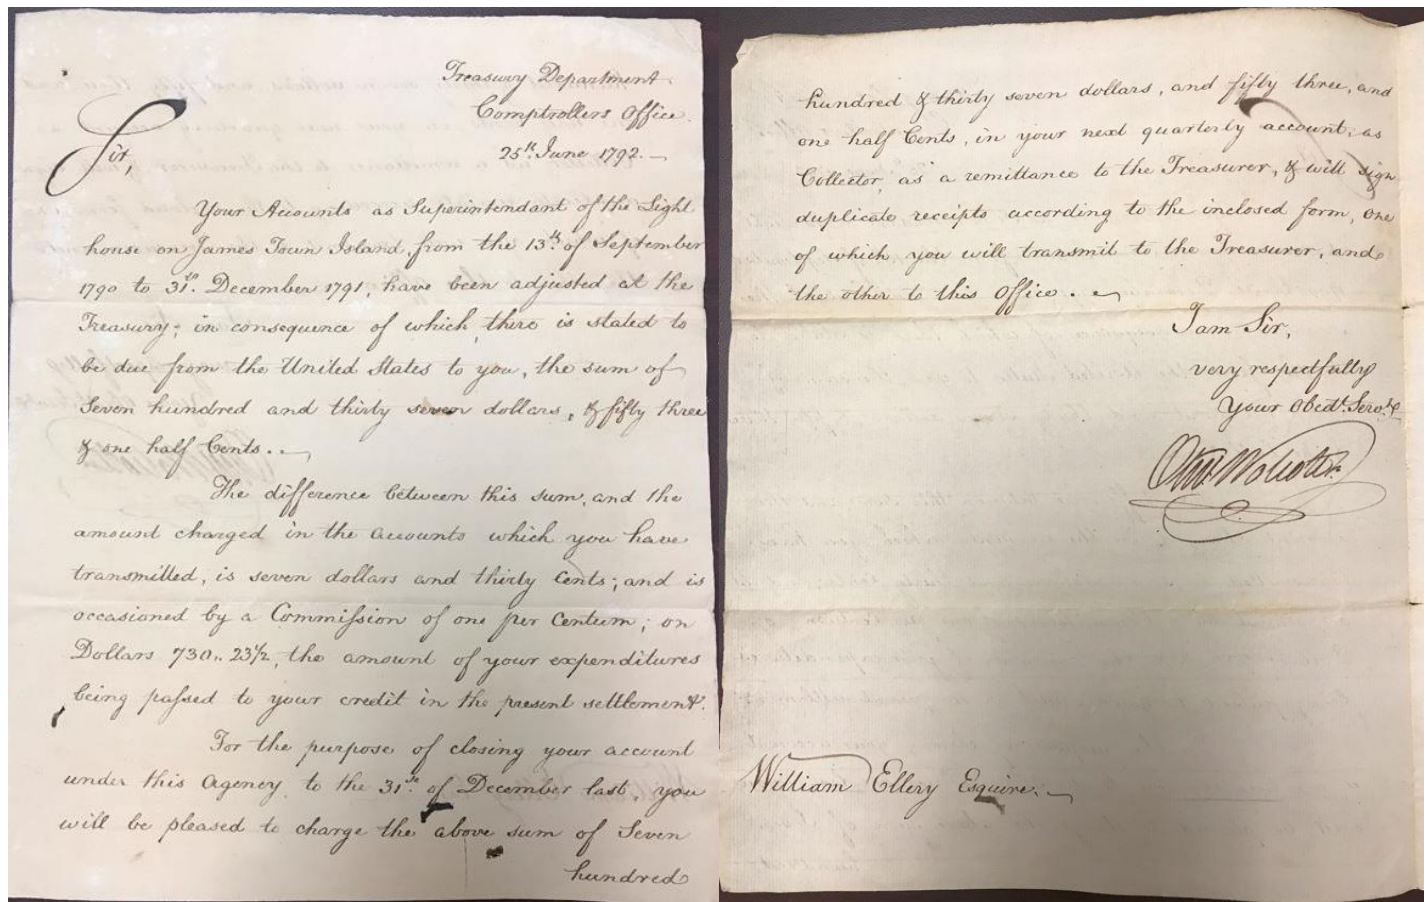 Treasury Department
Comptrollers Office.
25th. June 1792.
Sir,
Your Accounts as Superintendant of the Light
house on James Town Island, from the 13th. of September
1790 to 31st. December 1791, have been adjusted at the
Treasury; in consequence of which, there is stated to
be due from the United States to you, the sum of
Seven hundred and thirty seven dollars, & fifty three
& one half Cents.
The difference between this sum, and the
amount charged in the accounts which you have
transmitted, is seven dollars and thirty Cents; and is
occasioned by a Commission of one per Centum; on
Dollars 730.. 23 1/2, the amount of your expenditures
being passed to your credit in the present settlement.
For the purpose of closing your account
under this Agency, to the 31st. of December last, you
will be pleased to charge the above sum of Seven
hundred
hundred & thirty seven dollars, and fifty three, and
one half Cents, in your next quarterly account, as
Collector, as a remittance to the Treasurer, & will sign
duplicate receipts according to the inclosed form, one
of which you will transmit to the Treasurer, and
the other to this Office.
I am Sir,
very respectfully
Your Obedt. Servt.
Olivr. Wolcott Jr.
William Ellery Esquire.